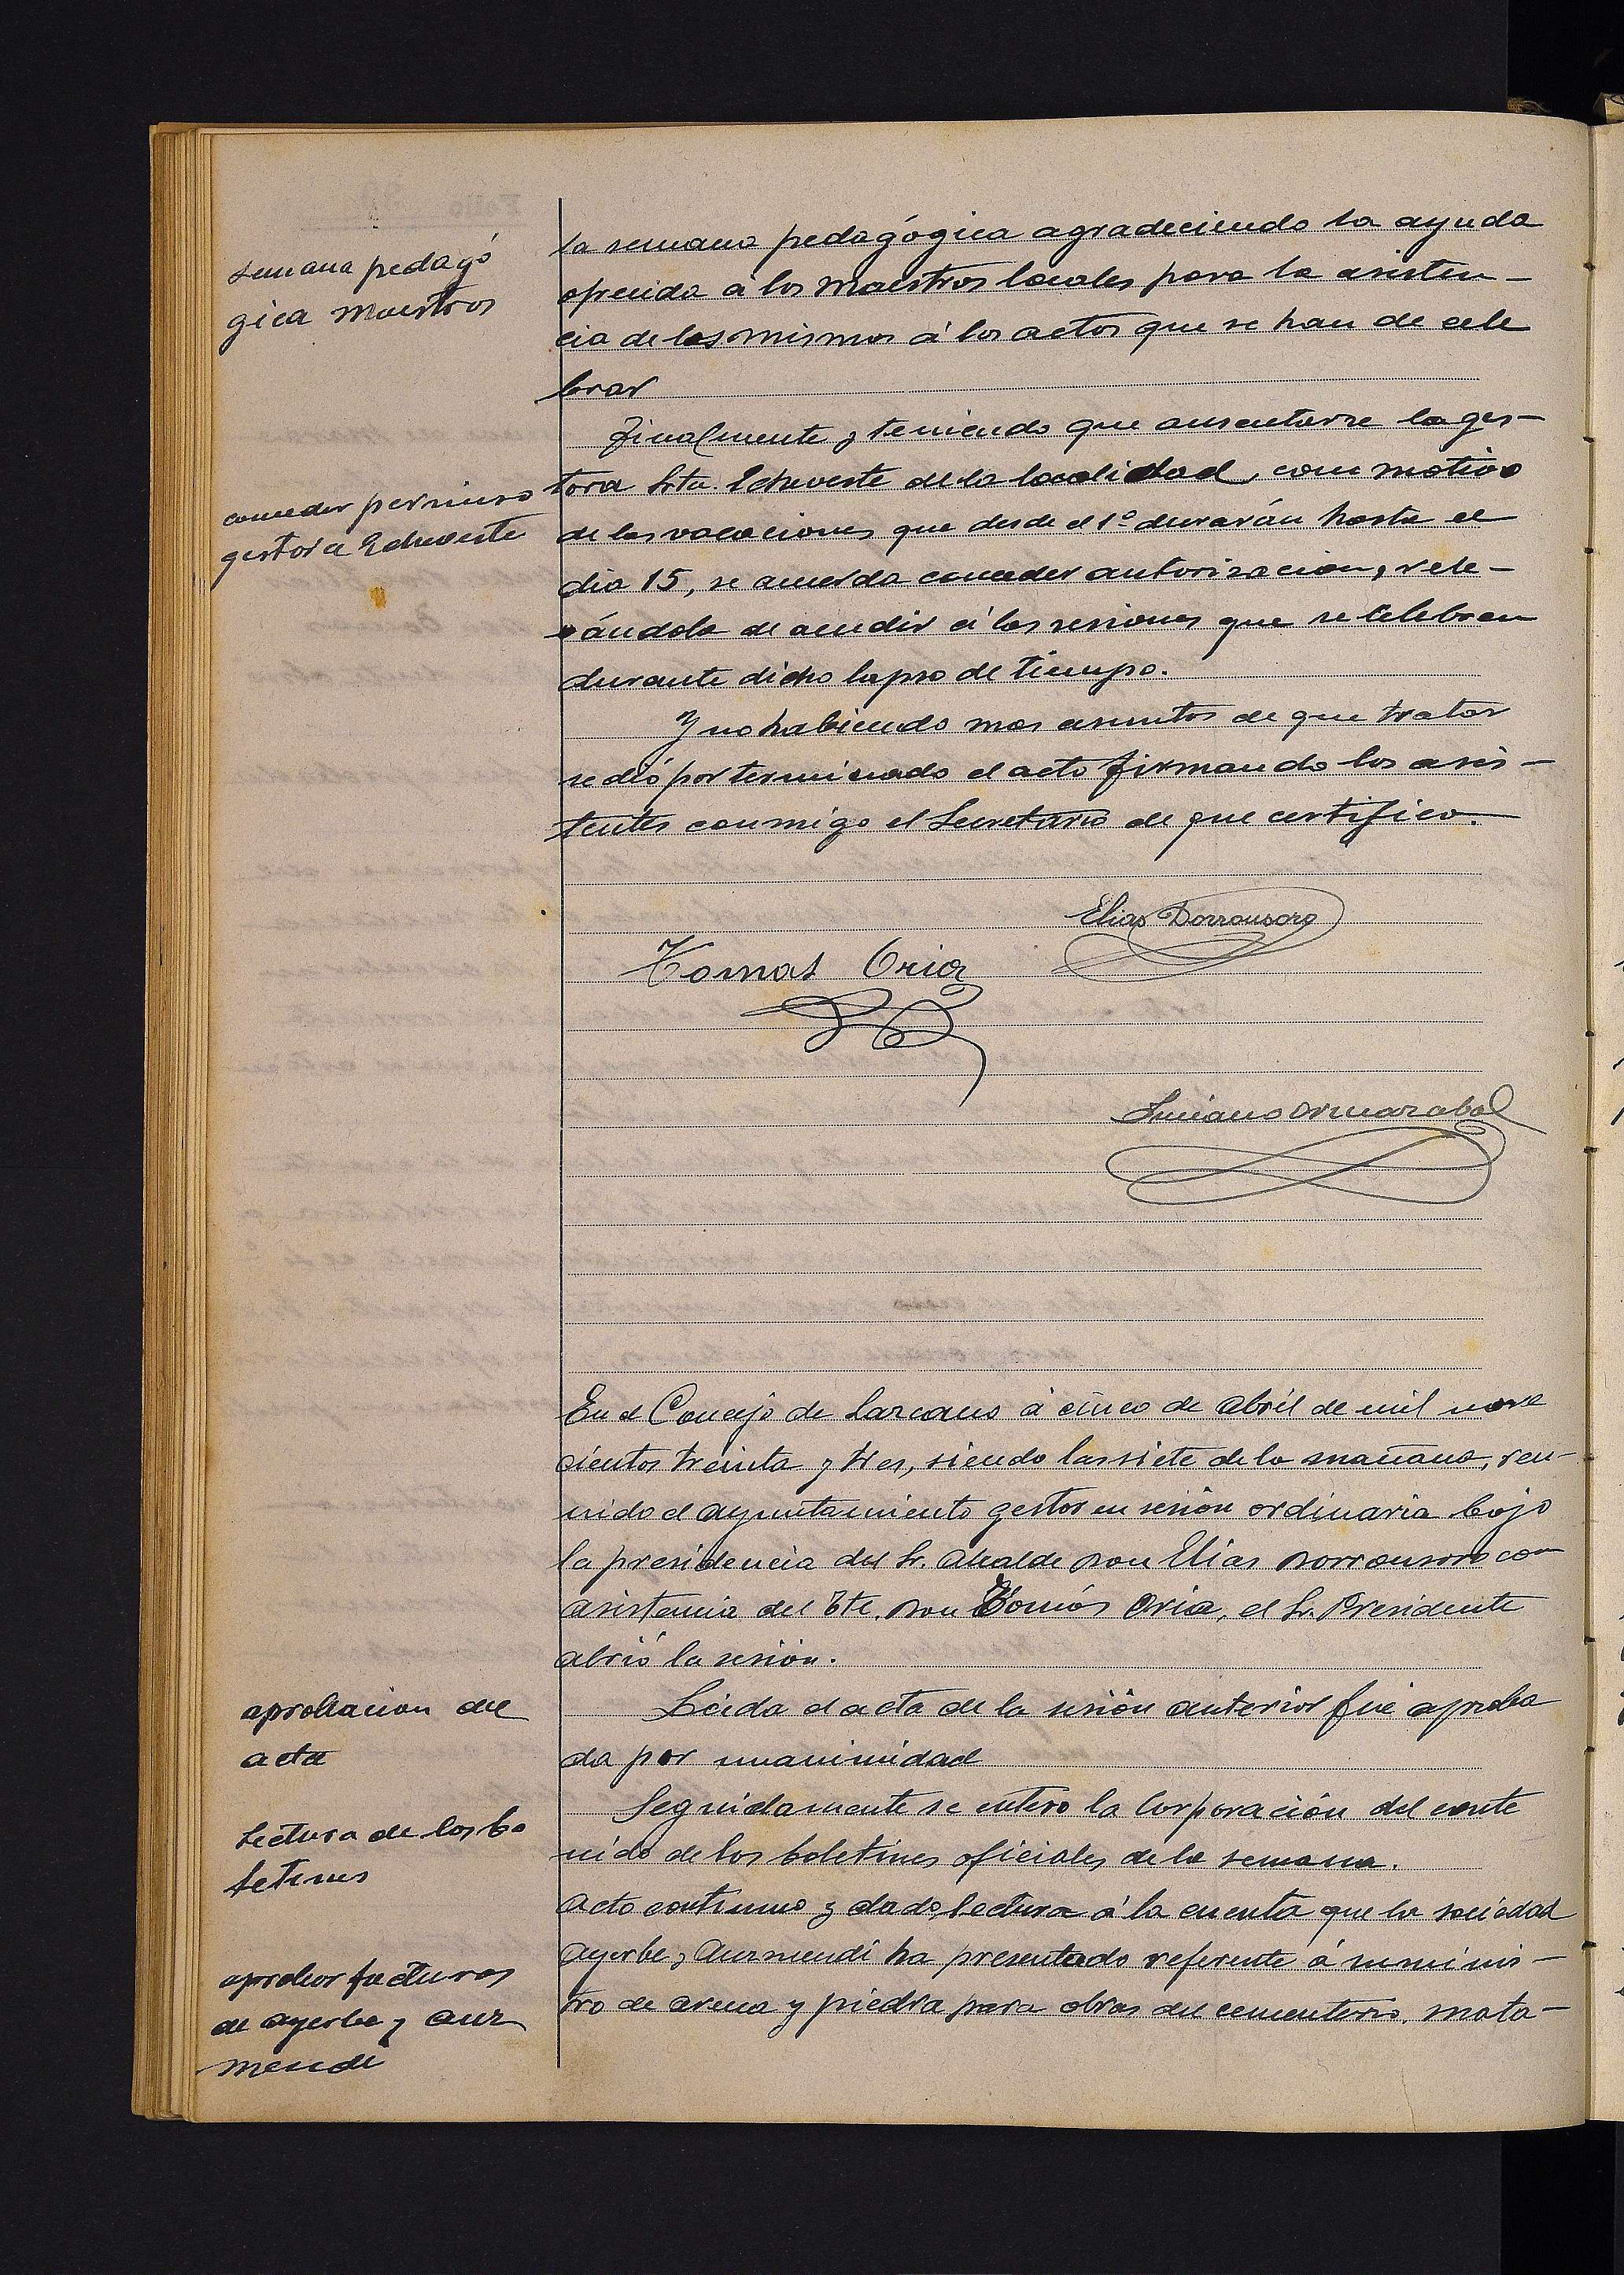 semana pedagó
gica maestros
la semana pedagógica agradeciendo la ayuda
ofrecida á los maestros locales para la asisten-
cia de los mismos á los actos que se han de cele
brar
Finalmente y teniendo que ausentarse la ges-
conceder permiso
gestora Echeveste
tora Srta. Echeveste de la localidad, con motivo
de las vacaciones que desde el 1º durarán hasta el
dia 15, se acuerda conceder autorizacion, rele-
vándola de acudir á las sesiones que se celebren
durante dicho lapso de tiempo.
Y no habiendo mas asuntos de que tratar
se dió por terminado el acto firmando los asis-
tentes conmigo el Secretario de que certifico.
Elias Dorronsoro
Tomas Oria
Luciano Ormazabal
En el Concejo de Lazcano á cinco de abril de mil nove
cientos treinta y tres, siendo las siete de la mañana, reu-
nido el ayuntamiento gestor en sesión ordinaria bajo
la presidencia del Sr. Alcalde Don Elias Dorronsoro con
asistencia del Tte. Don Tomás Oria, el Sr. Presidente
abrió la sesión.
aprobacion del
acta
Léida el acta de la sesión anterior fué aproba
da por unanimidad
Lectura de los bo
letines
Seguidamente se entero la Corporación del conte
nido de los boletines oficiales de la semana.
Acto continuo y dado lectura á la cuenta que la sociedad
aprobar facturas
de ayerbe y aur
mendi
Ayerbe y Aurmendi ha presentado referente á suminis-
tro de arena y piedra para obras del cementerio, mata-